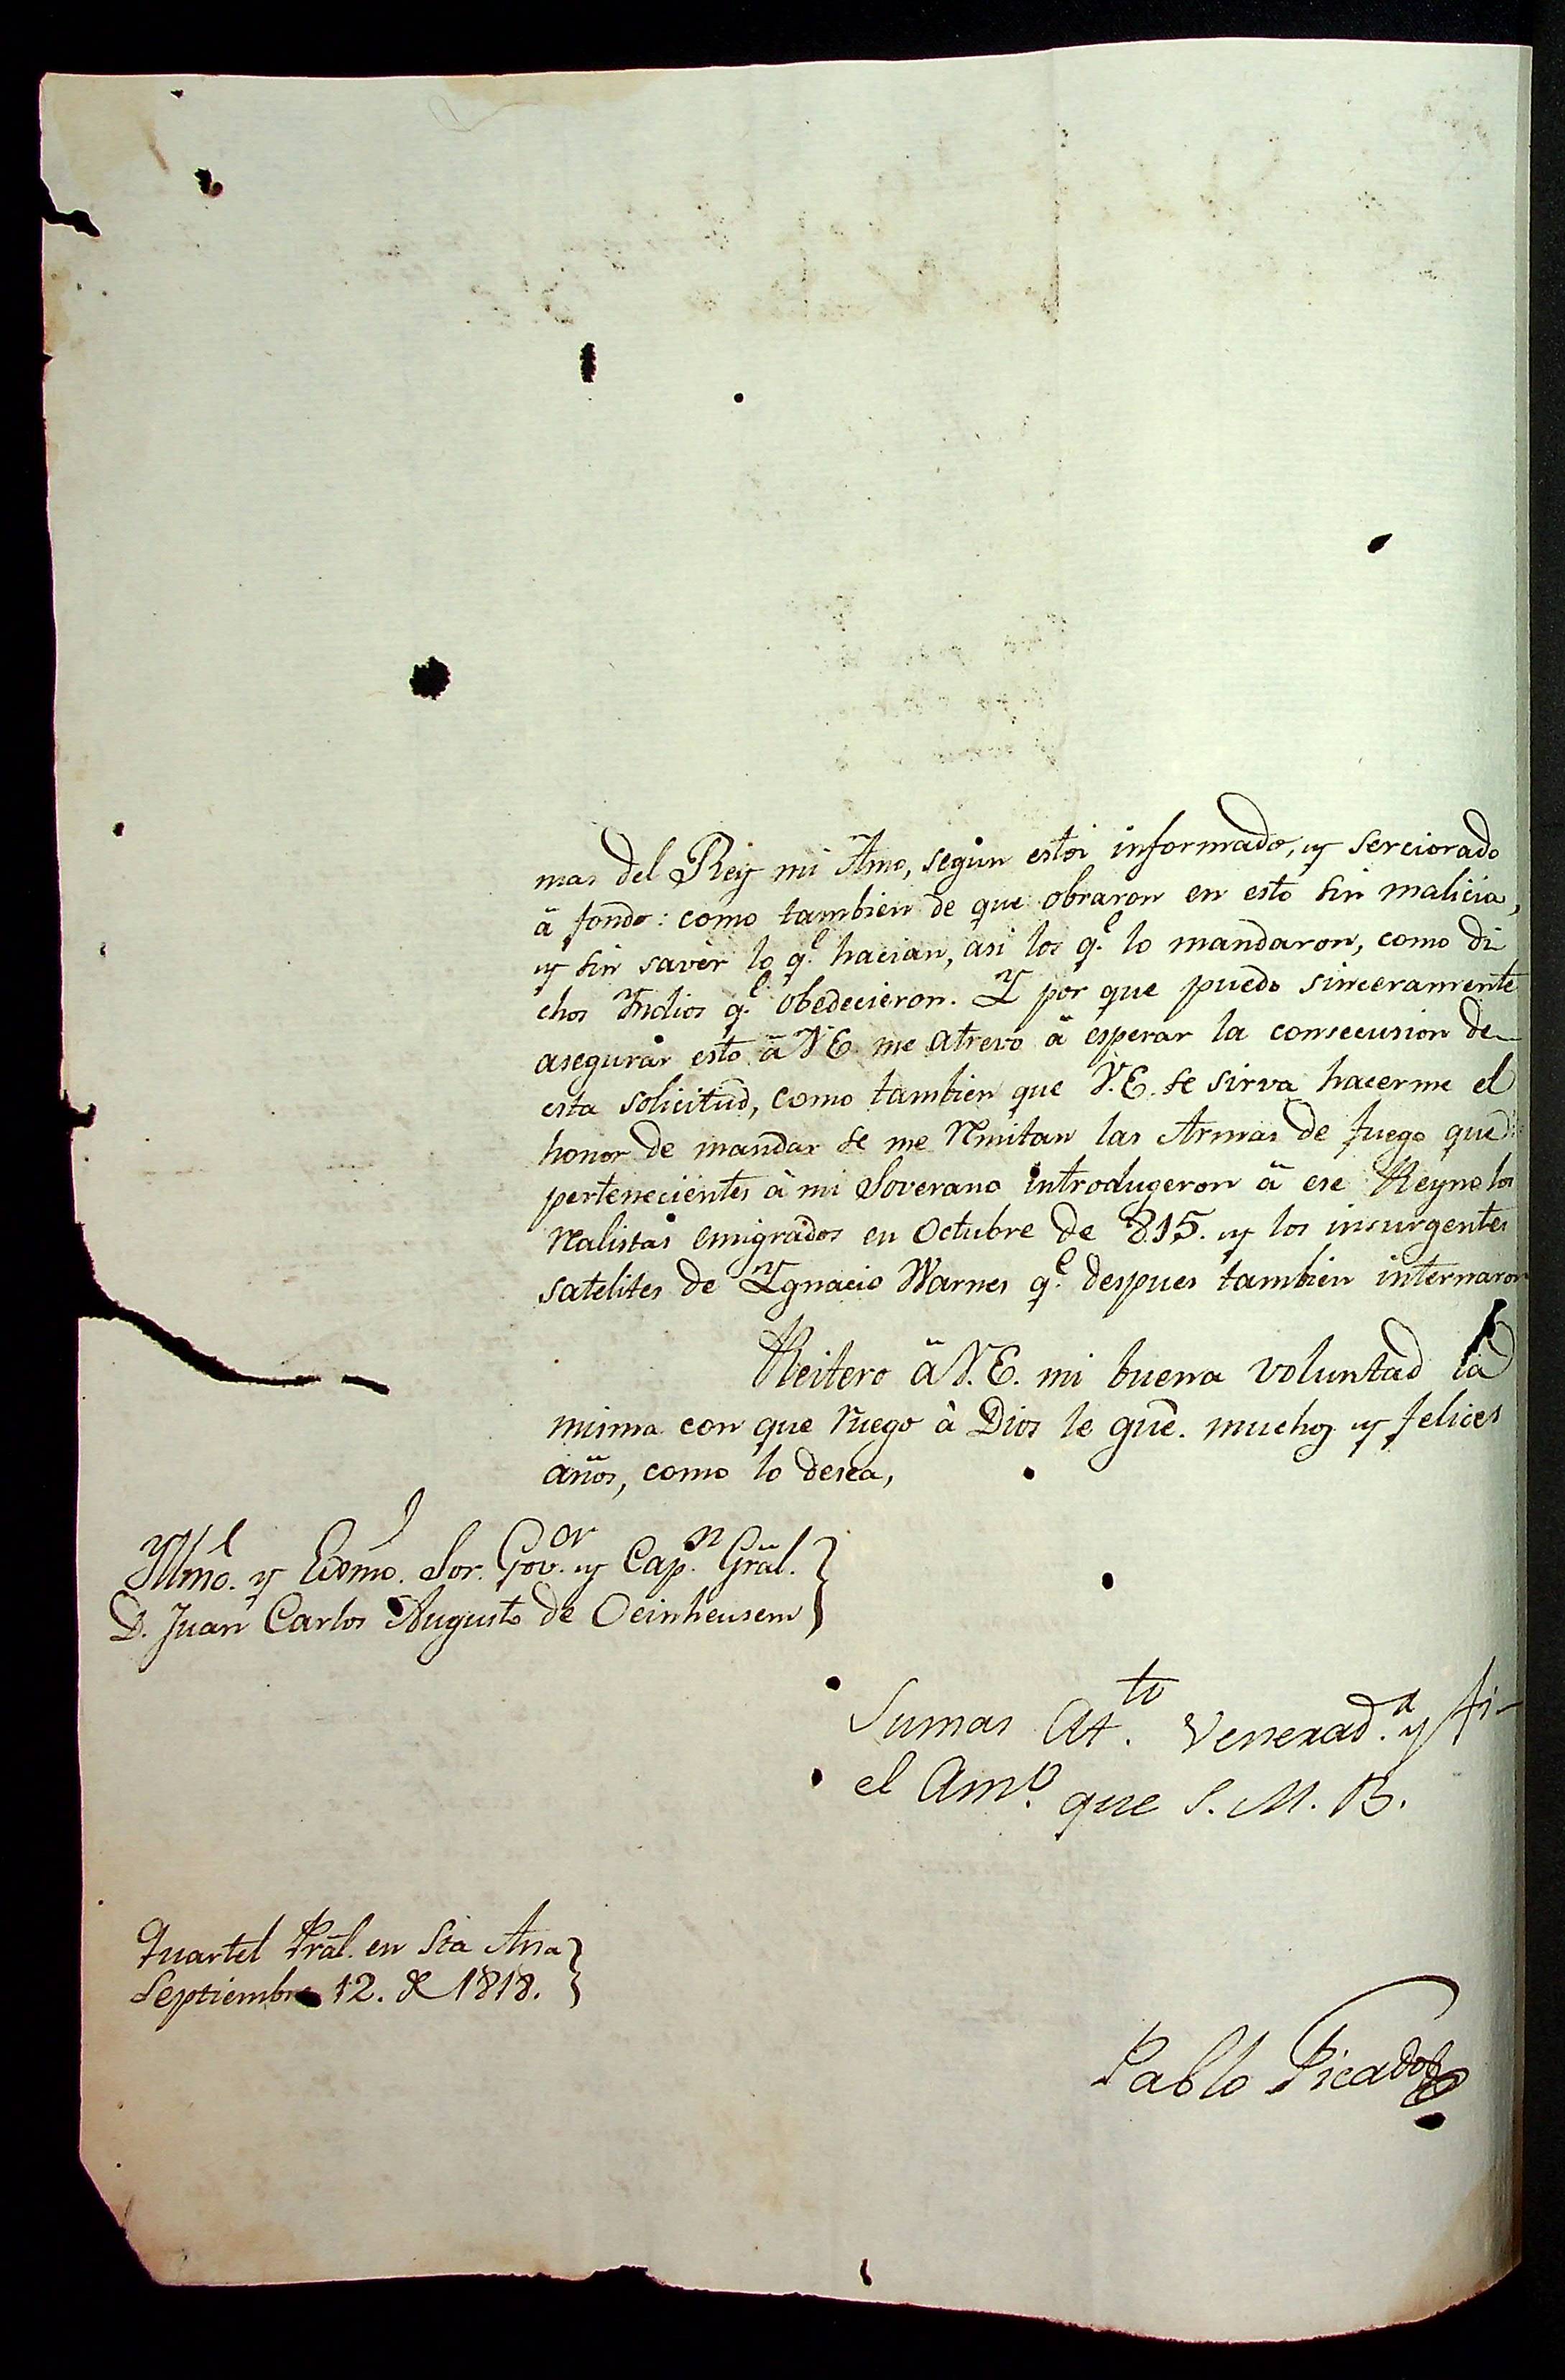 mas del Rey mi Amo, segun estoi informado, y serciorado
â fondo: como tambien de que obraron en esto sin malicia,
y sin savèr lo q.e hacian, asi los q.e lo mandaron, como di
chos Yndios q.e obedecieron. Y por que puedo sinceramente
asegurar esto â V.E. me atrevo â esperar la consecusion de
esta solicitud, como tambien que V.E. se sirva hacerme el
honor de mandar se me Rmitan las Armas de fuego que
pertenecientes à mi Soverano introdugeron â ese Reyno los
Ralistas emigrados en Octubre de 815. y los insurgentes
satelites de Ygnacio Warnes q.e despues tambien internaron
Reitero â V.E. mi buena voluntad la
misma con que ruego à Dios le guē. muchos y felices
años, como lo desea,
Yllmō. y Exmō. Sor. Gov.or y Cap.n Grāl.
D. Juan Carlos Augusto de Oeinheusem
Sumas At.to Venerad.r y fi-
el Am.o que S. M. B.
Quartel Prāl. en Sta Ana
Septiembre 12. de 1818.
Pablo Picado